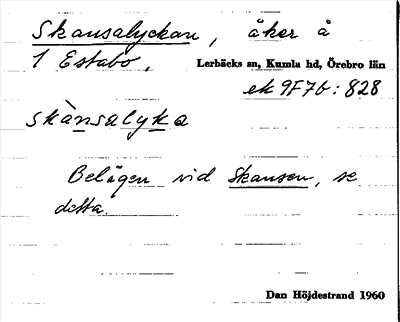 Skansalyckan, åker å
1 Estabo, Lerbäcks sn, Kumla hd, Örebro län
ek 9F7b:828
skànsalyka
Belägen vid Skansen, se
detta.
Dan Höjdestrand 1960